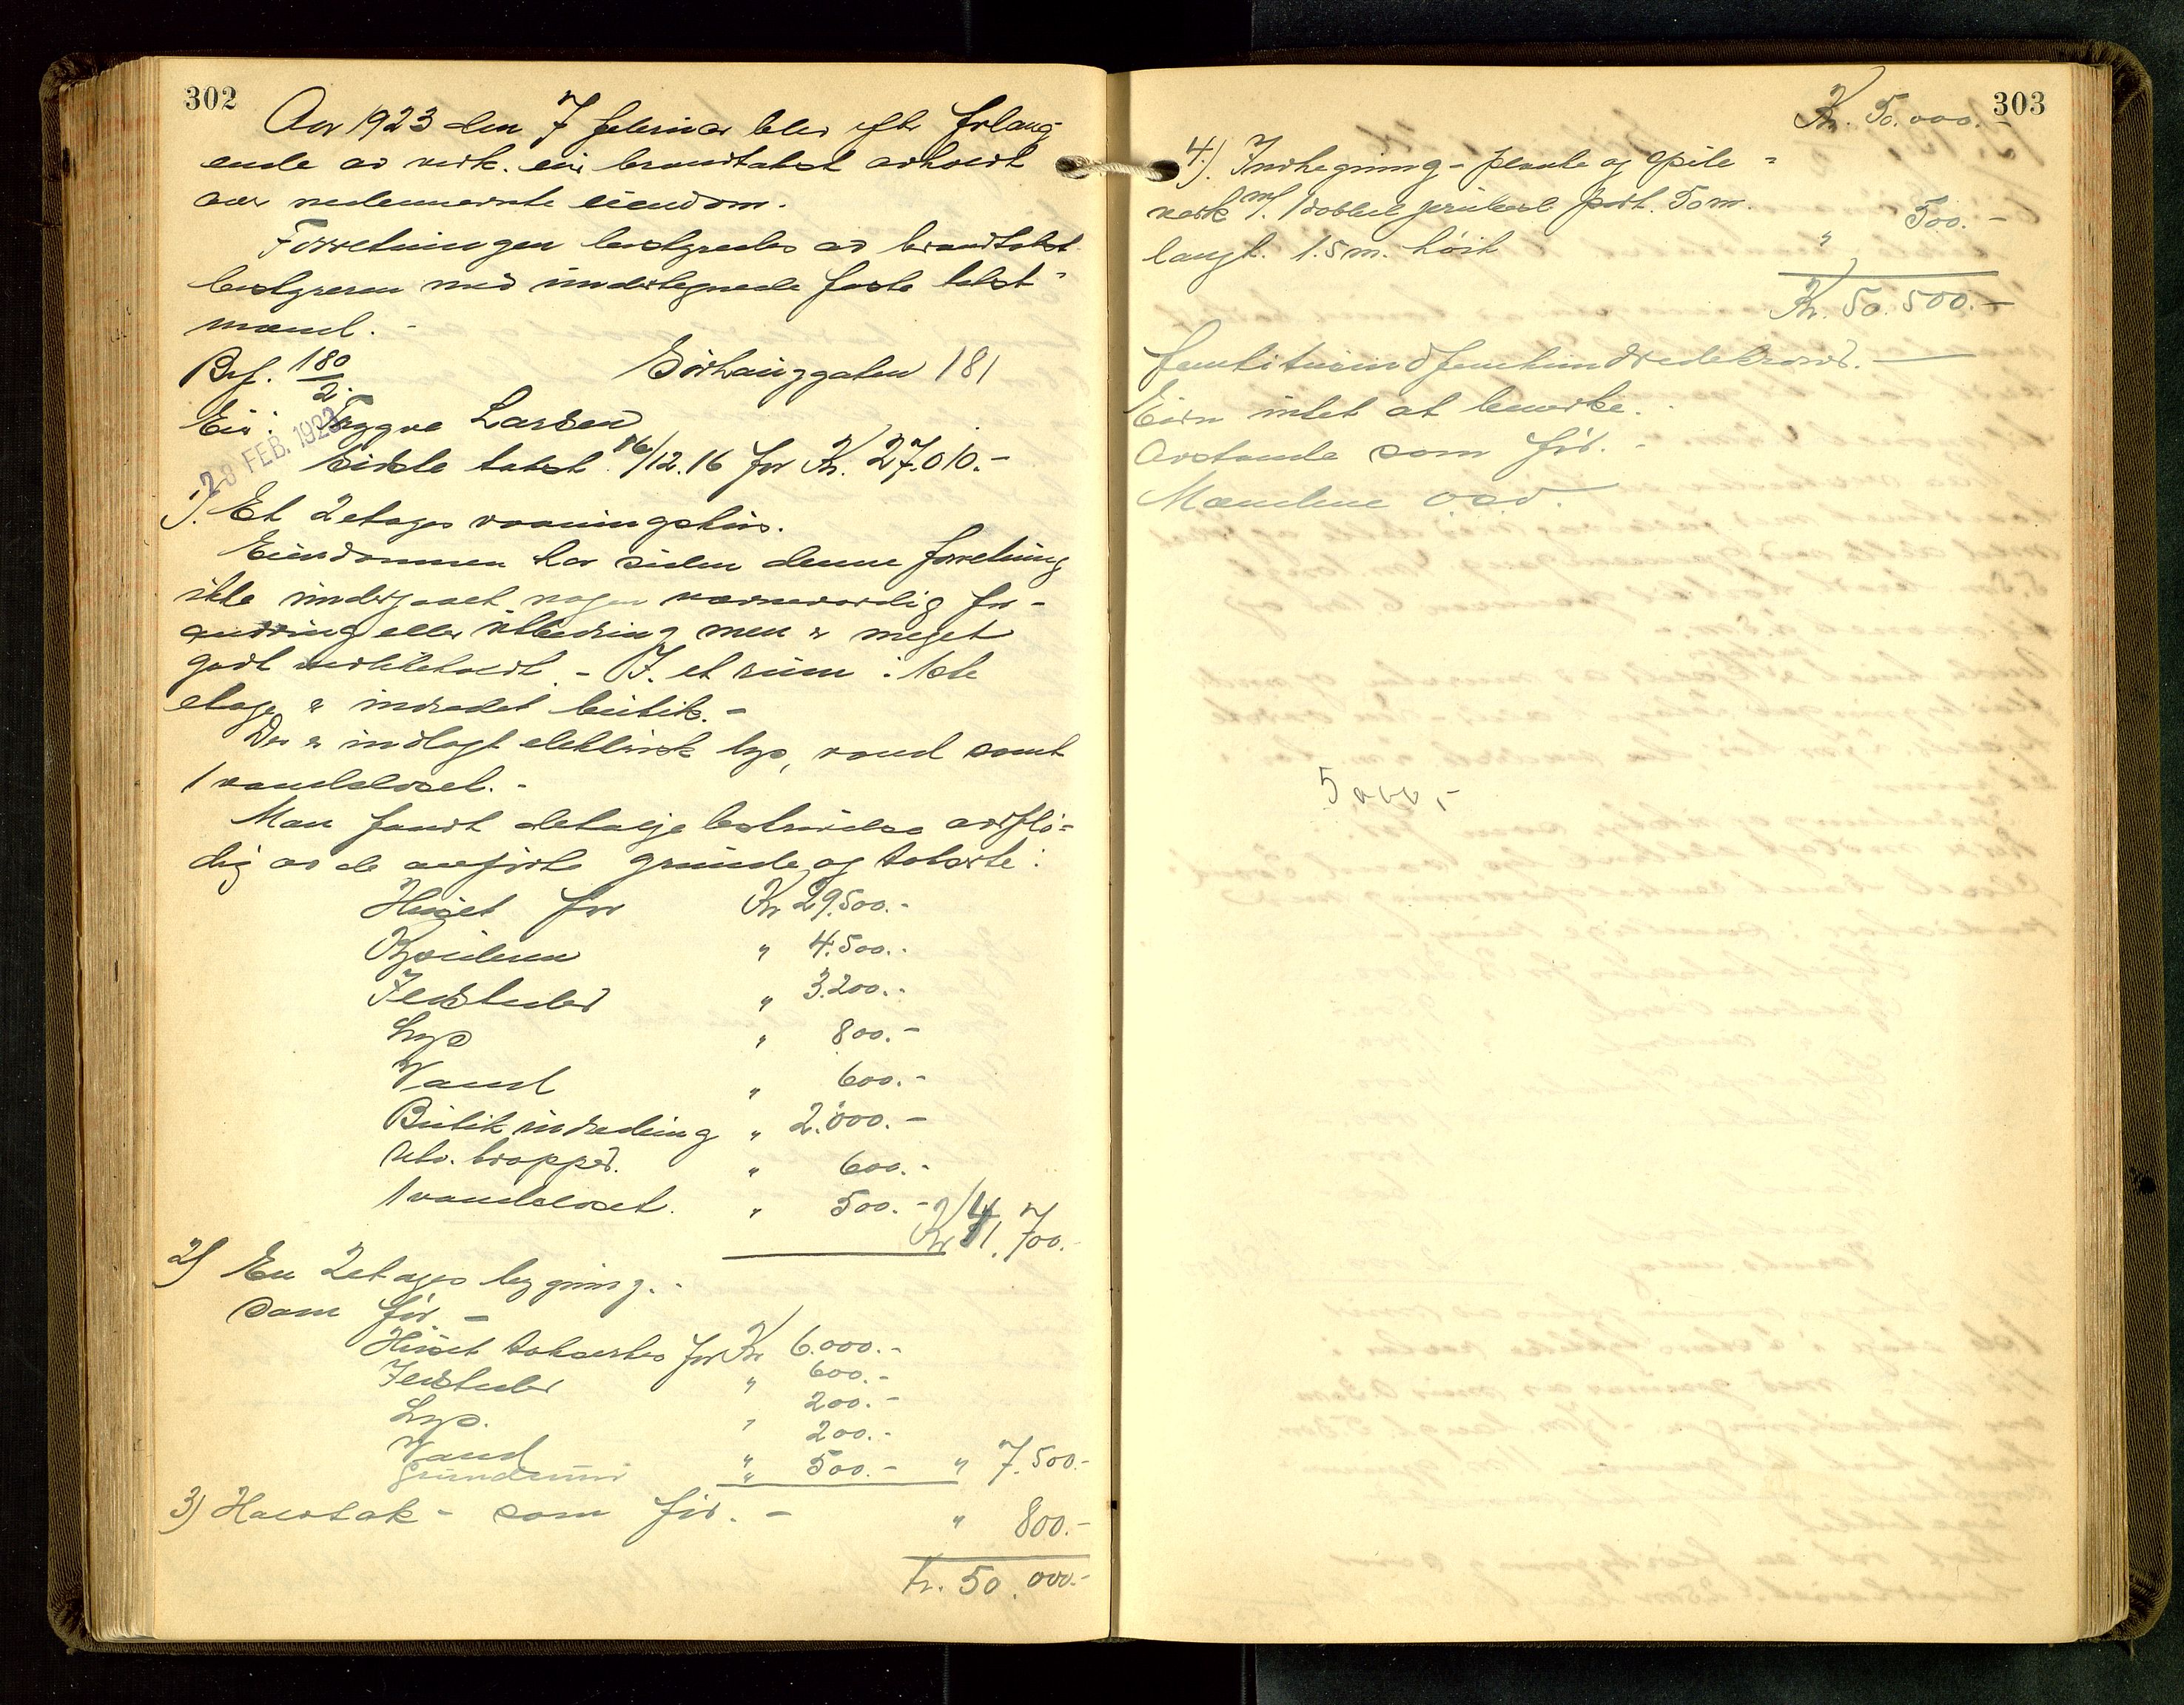 302
Aar 1923 den 7 februar blev efter forlang
ende av vedk. eier brandtakst avholdt
over nedennævnte eiendom.
Forretningen bestyredes av brandtakst
bestyreren med undertegnede faste takst-
mænd. -
Brf. 180/2. Sørhauggaten 181
Eier: Trygve Larsen
28 FEB. 1923
Sidste takst 16/12.16 for Kr. 27.010.-
1). Et 2 etages vaaningshus.
Eiendommen har siden denne forretning
ikke undergaaet nogen nævneværdig for-
andring eller utbedring men er meget
godt vedlikeholdt. - I et rum i 1ste
etage er indredet butik. -
Der er indlagt elektrisk lys, vand samt
1 vandcloset. -
Man fandt detalje beskrivelse overflø-
dig av de anførte grunde og takserte:
Huset for Kr 29.500.-
Kjælderen " 4.500.-
Ildsteder " 3.200.-
Lys " 800.-
Vand " 600.-
Butik indredning " 2.000.-
Utv. trapper. " 600.-
1 vandcloset. " 500.- Kr 41.700.
2) En 2 etages bygning. -
som før -
Huset takseres for Kr 6.000.-
Ildsteder " 600.-
Lys. " 200.-
Vand " 200.-
Grundmur " 500.- " 7.500.-
3) Halvtak - som før. - " 800.-
Kr. 50.000.-
303
Kr. 50.000.-
4). Indhegning - planke og spile-
verk m/. 1 dobbel port. 50 m.
langt. 1.5 m. høit " 500.-
Kr. 50.500.-
femtitusindfemhundredekroner. -
Eieren intet at bemerke.
Avstande som før. -
Mændene o.s.v.
5000,-